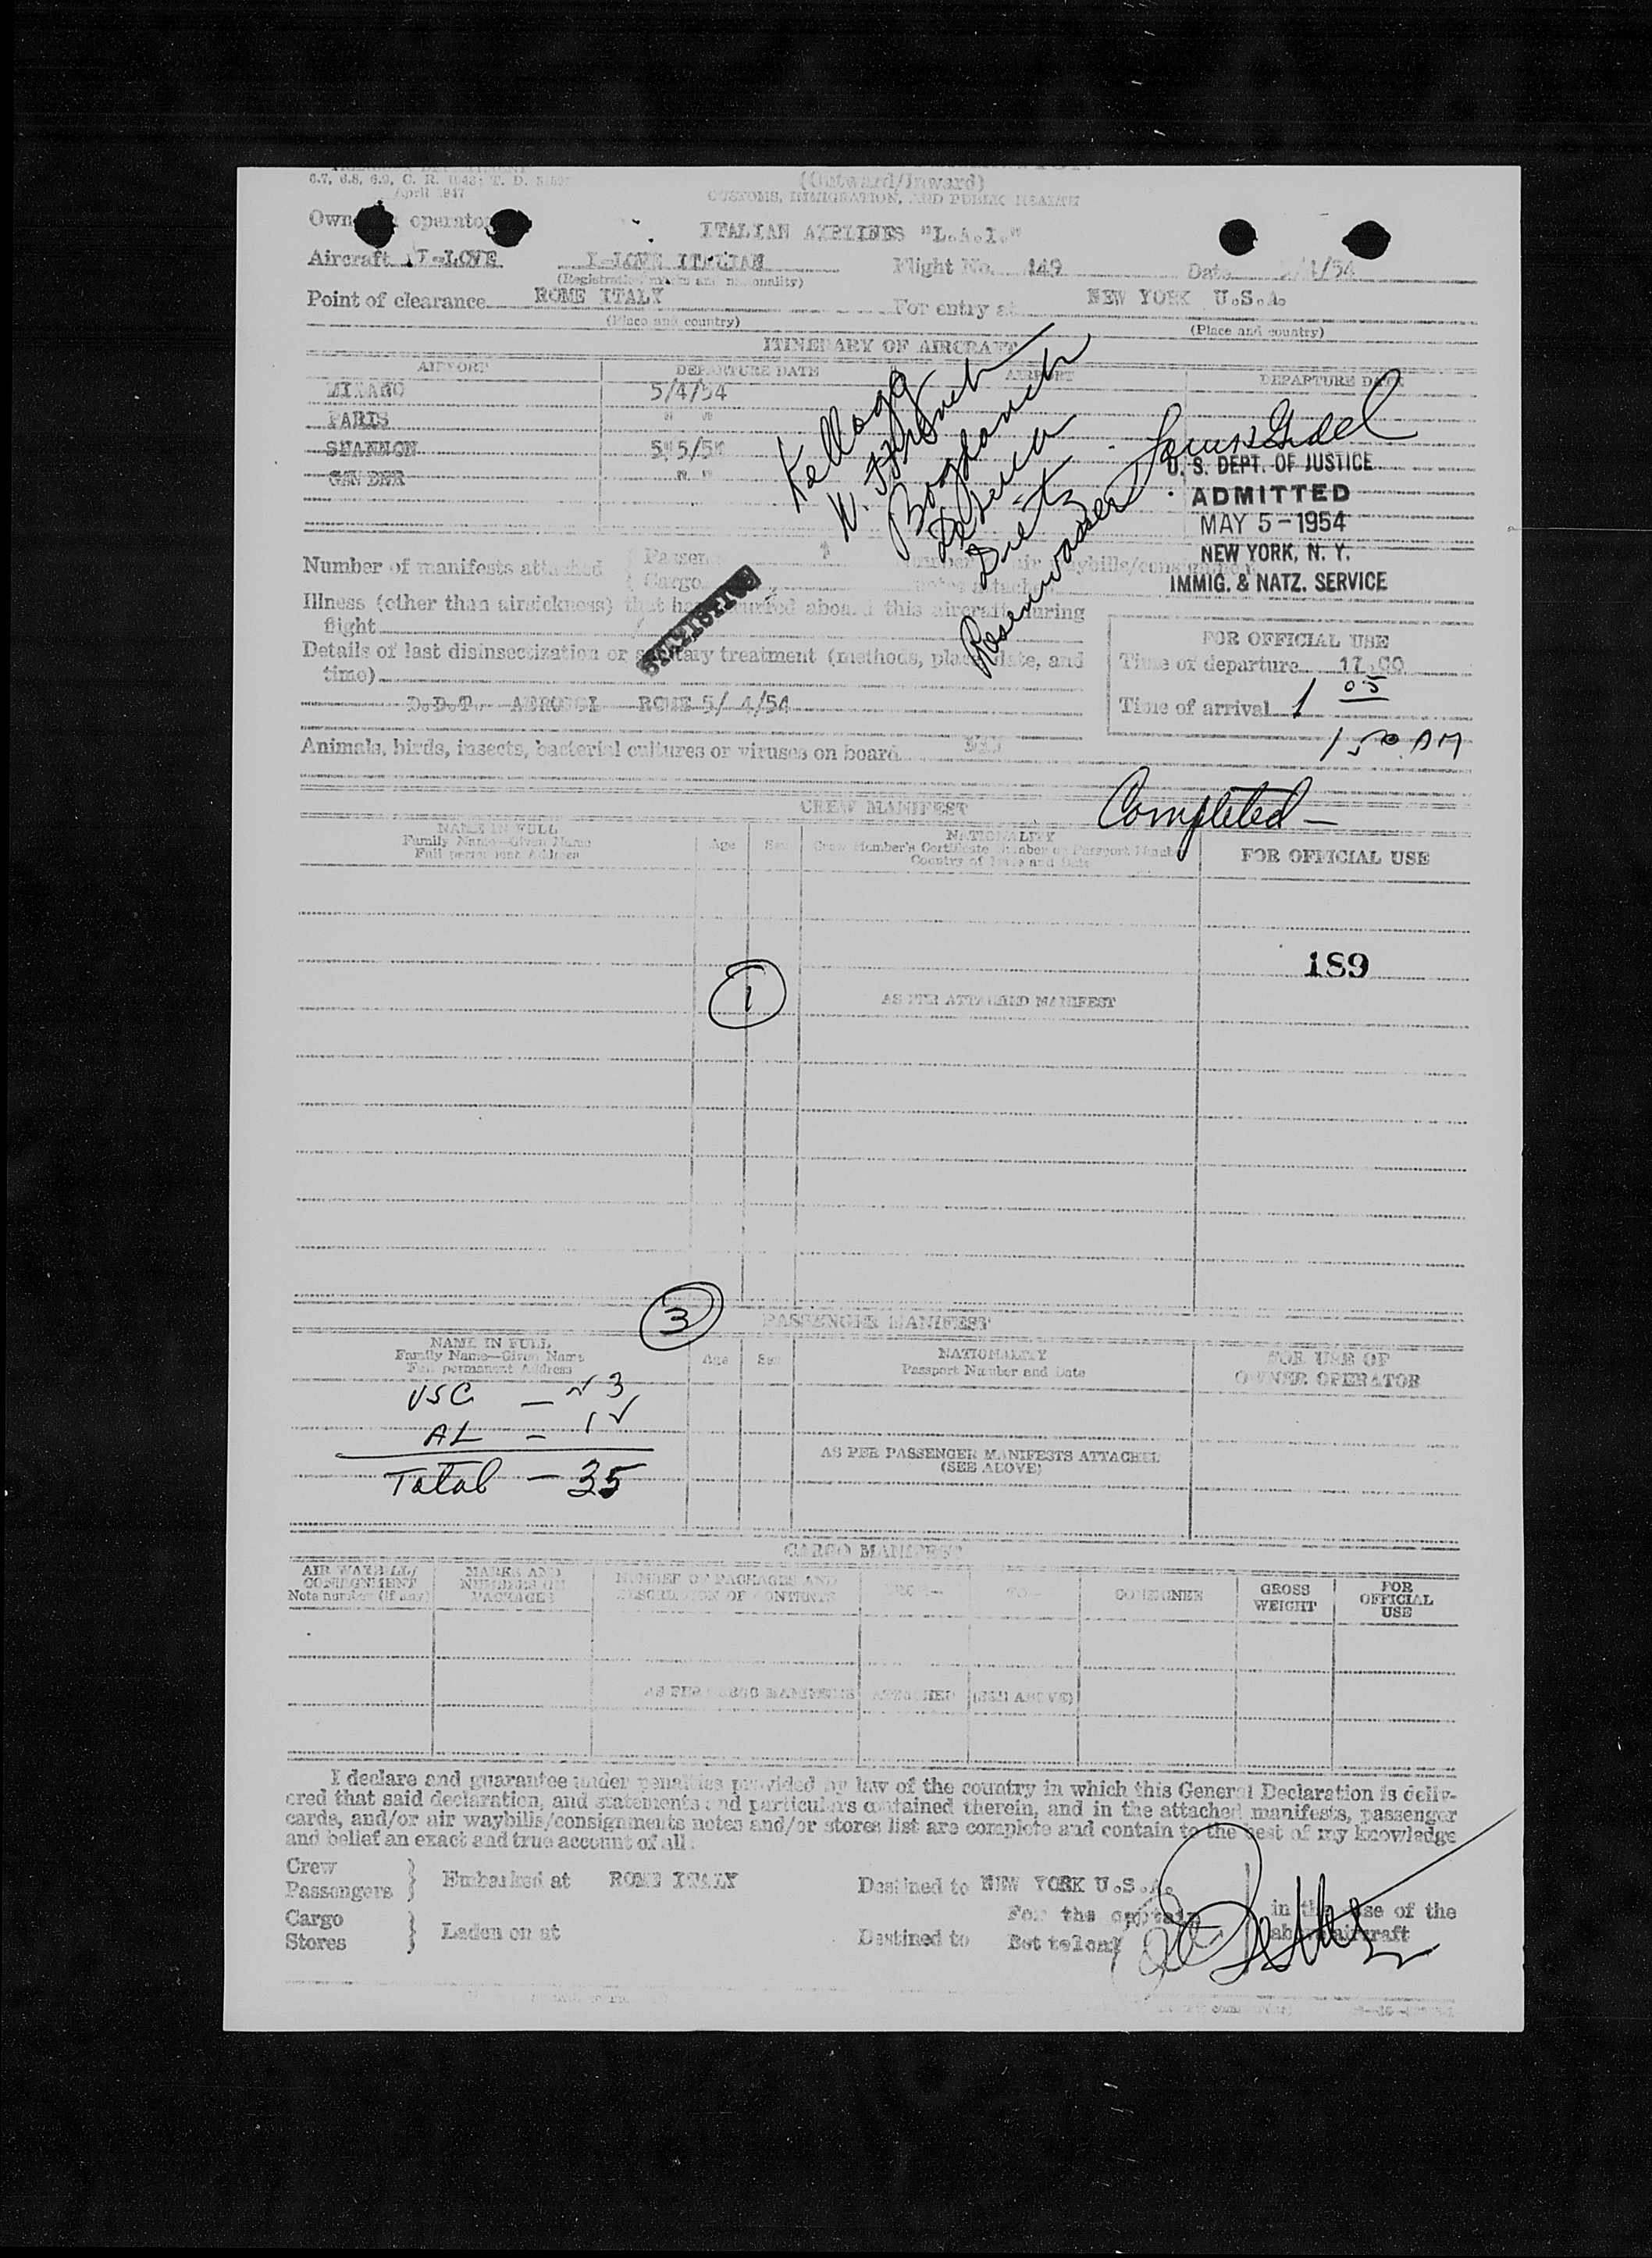 6.7, 6.8, 6.9, C. R. 1943; T. D.
April 1947
(Outward/Inward)
CUSTOMS, IMMIGRATION, AND PUBLIC HEALTH
Own operator
ITALIAN AIRLINES "L.A.I."
Aircraft I-LOVE I-LOVE ITALIAN Flight No. 149 Date /54
(Registration marks and nationality)
Point of clearance ROME ITALY For entry at NEW YORK U.S.A.
(Place and country) (Place and country)
ITINERARY OF AIRCRAFT
AIRPORT DEPARTURE DATE AIRPORT DEPARTURE DATE
MILANO 5/4/54
PARIS " "
SHANNON 5/5/5
GANDER " "
Kellogg
Bogdanich
Dietz
Rosenwasser
U. S. DEPT. OF JUSTICE
ADMITTED
MAY 5 - 1954
NEW YORK, N. Y.
IMMIG. & NATZ. SERVICE
Number of manifests attached
Passen
Cargo
STATISTICS
Illness (other than airsickness) that has occurred aboard this aircraft during
flight
Details of last disinsectization or sanitary treatment (methods, place, date, and
time)
D.D.T. ROME 5/ 4/54
FOR OFFICIAL USE
Time of departure 17.00
Time of arrival 1 05
1 50 AM
Animals, birds, insects, bacterial cultures or viruses on board
Completed –
CREW MANIFEST
NAME IN FULL
Family Name—Given Name
Full permanent Address
Age Sex
NATIONALITY
Crew Member's Certificate Number or Passport Number
Country of Issue and Date
FOR OFFICIAL USE
189
1
AS PER ATTACHED MANIFEST
3
PASSENGER MANIFEST
NAME IN FULL
Family Name—Given Name
Full permanent Address
Age Sex
NATIONALITY
Passport Number and Date
FOR USE OF
OWNER OPERATOR
USC –
AL –
Total – 35
AS PER PASSENGER MANIFESTS ATTACHED
(SEE ABOVE)
CARGO MANIFEST
AIR WAYBILL/
CONSIGNMENT
Note number (if any)
MARKS AND
NUMBERS ON
PACKAGES
NUMBER OF PACKAGES AND
DESCRIPTION OF CONTENTS
CONSIGNEE
GROSS
WEIGHT
FOR
OFFICIAL
USE
AS PER CARGO MANIFESTS ATTACHED (SEE ABOVE)
I declare and guarantee under penalties provided by law of the country in which this General Declaration is deliv-
ered that said declaration, and statements and particulars contained therein, and in the attached manifests, passenger
cards, and/or air waybills/consignments notes and/or stores list are complete and contain to the best of my knowledge
and belief an exact and true account of all:
Crew
Passengers } Embarked at ROME ITALY Destined to NEW YORK U.S.A.
For the captain in the case of the
Cargo
Stores } Laden on at Destined to above aircraft